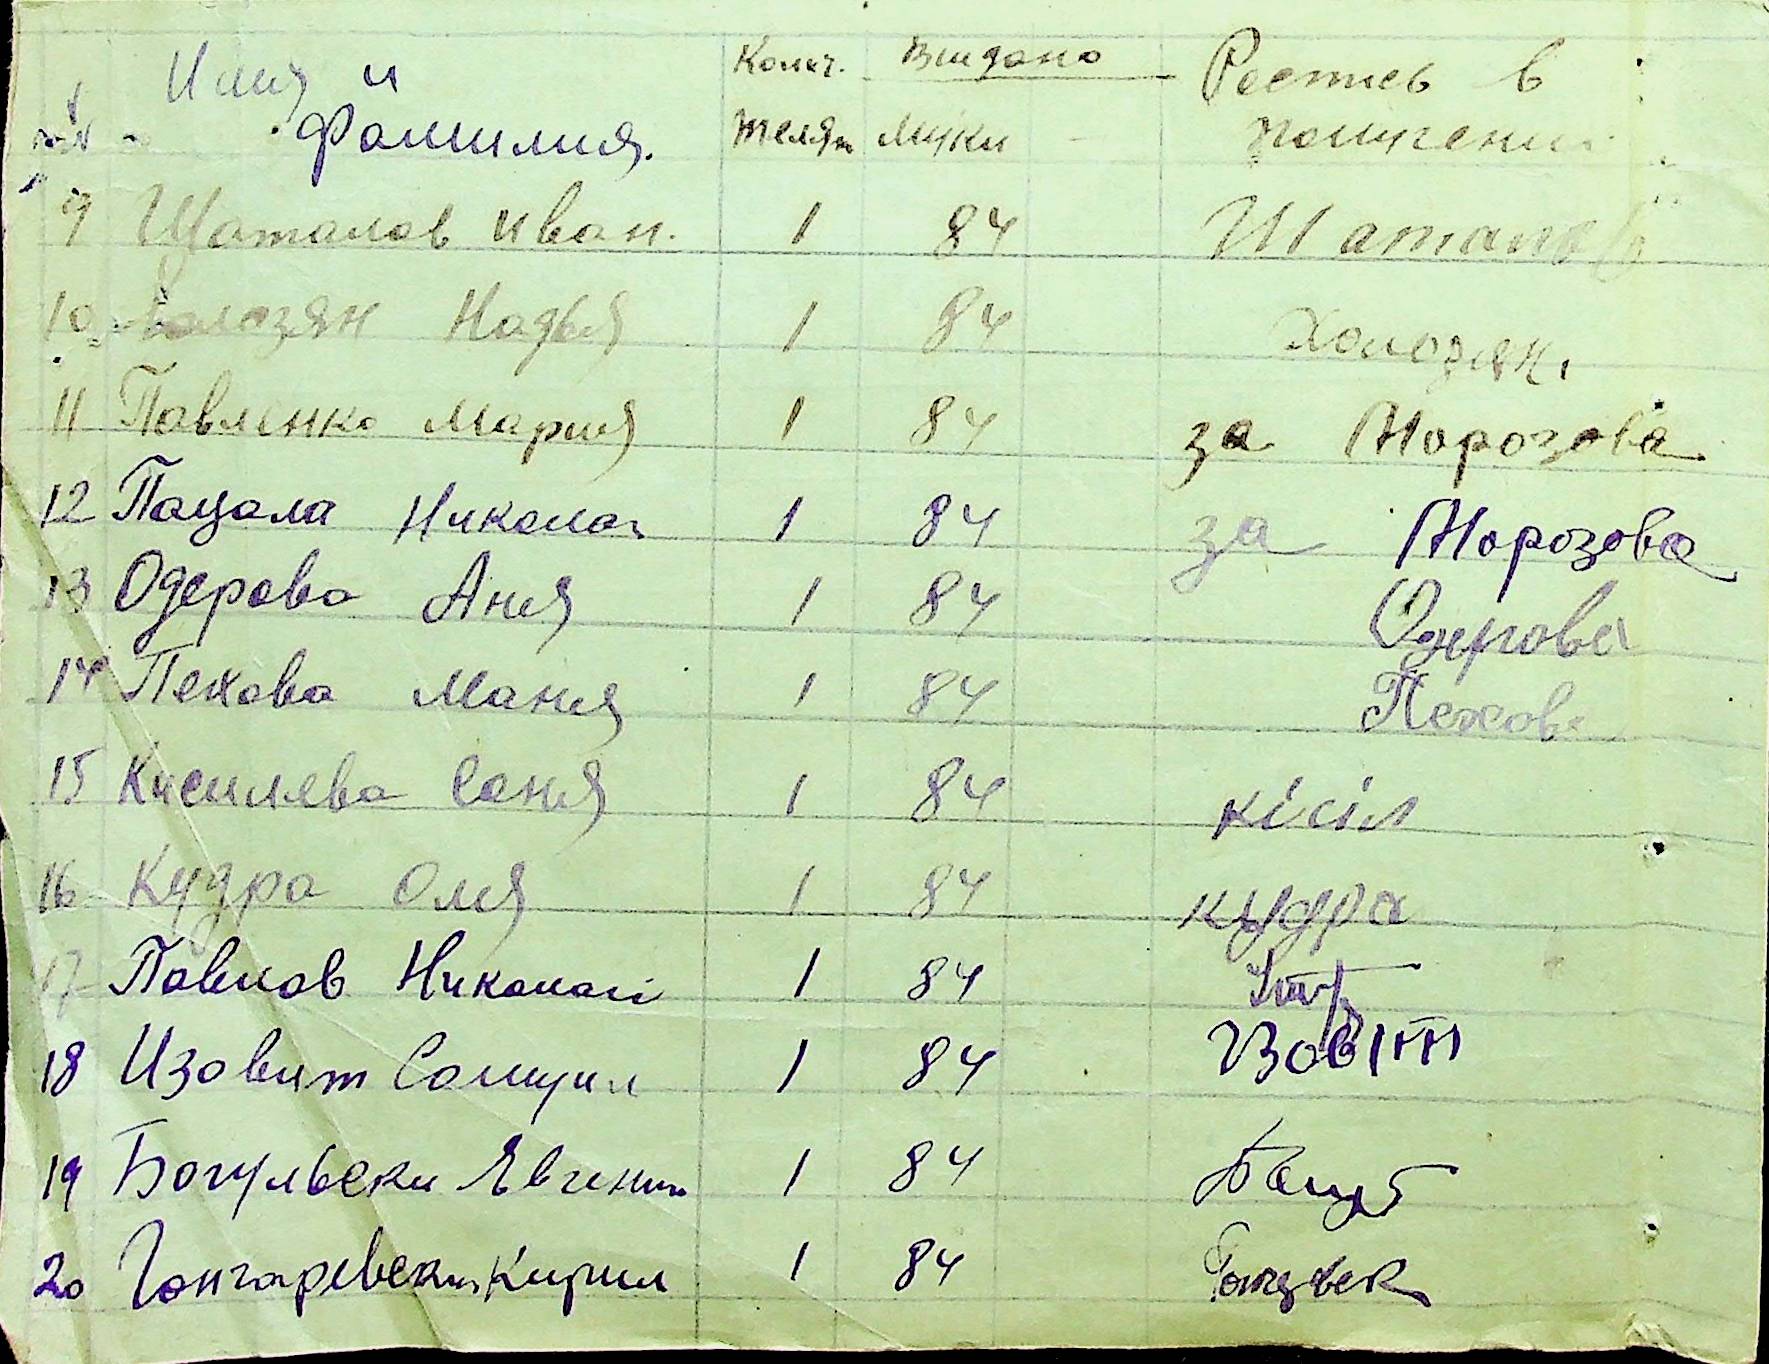 Имя и Колич. Выдано Ростись в
Фамилия. телят муки получении
9 Шаталов Иван. 1 84 Шаталов
10 Холозян Надья 1 84 Холозян.
11 Павленко Мария 1 84 за Морозова
12 Пацала Николай 1 84 за Морозова
13 Одерова Аня 1 84 Одерова
14 Пехова Маня 1 84 Пехова
15 Кисилева Соня 1 84 кісіл
16 Кудра Оля 1 84 кудра
17 Павлов Николай 1 84
18 Изовит Самуил 1 84 Ізовіт
19 Богульски Явгении 1 84
20 Гончаревски Кирил 1 84